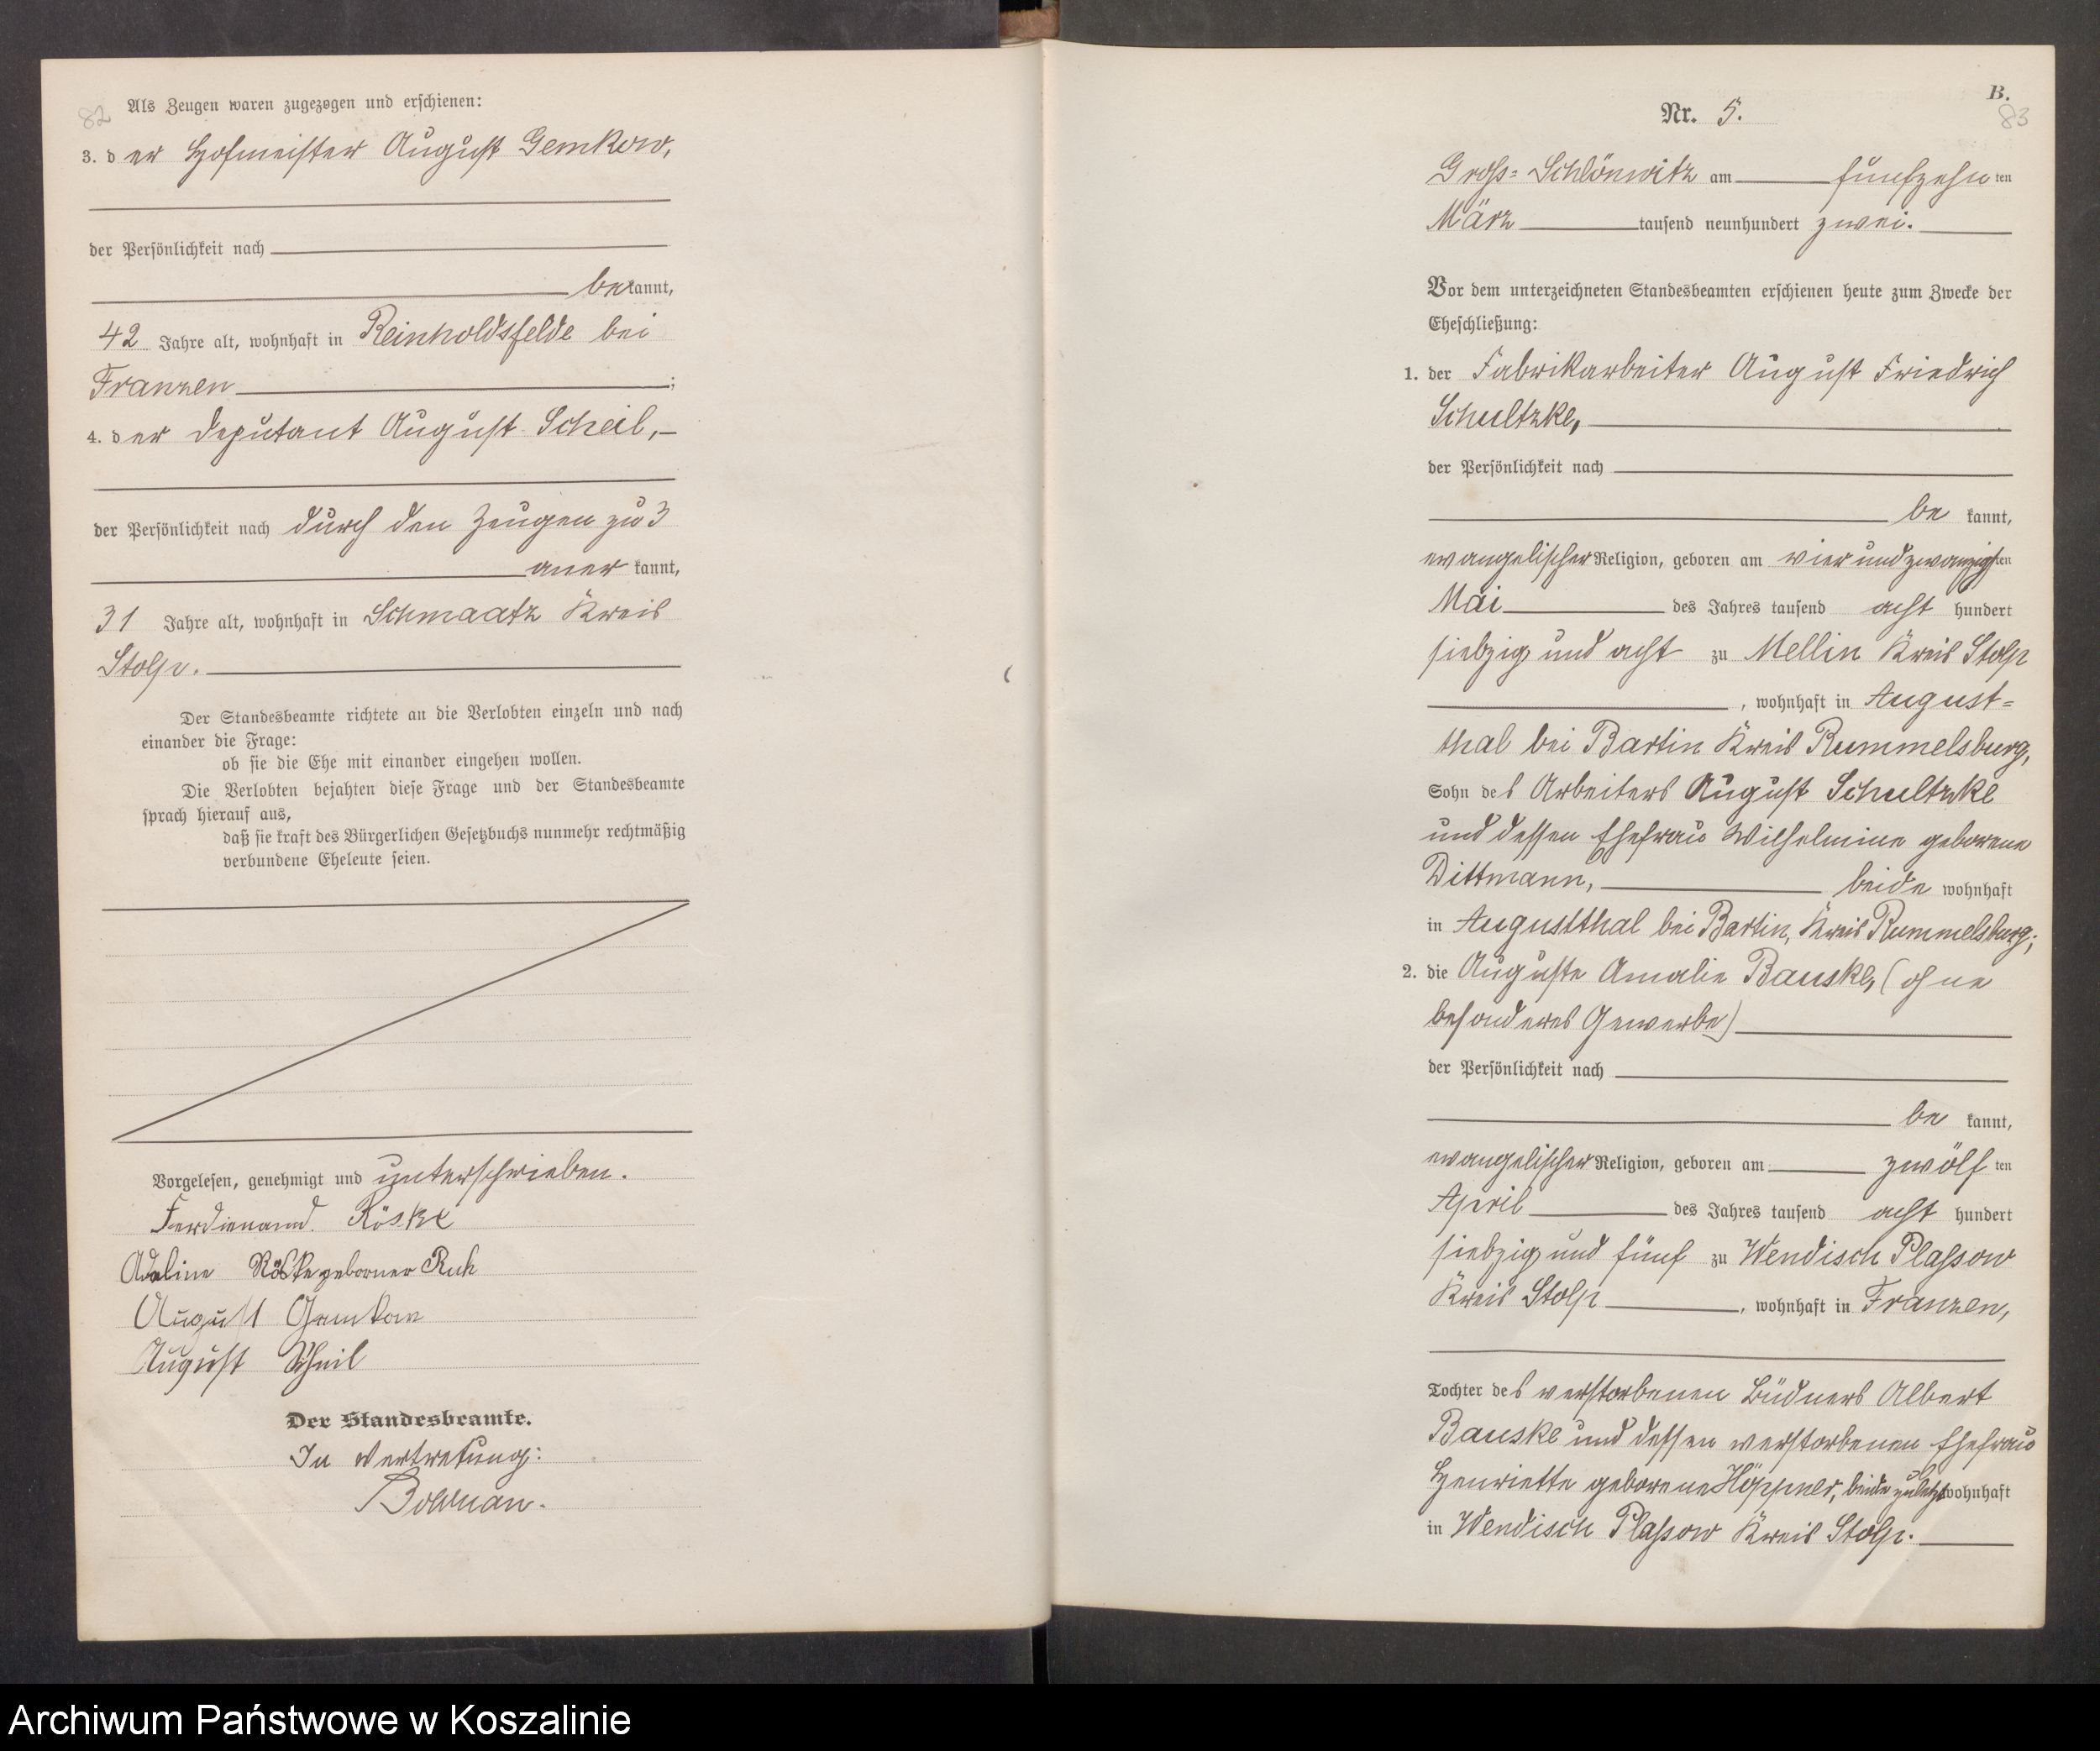 82
Als Zeugen waren zugezogen und erschienen:
3. der Hofmeister August Gemkow,
der Persönlichkeit nach
bekannt,
42 Jahre alt, wohnhaft in Reinholdsfelde bei
Franzen;
4. der Deputant August Scheil,
der Persönlichkeit nach durch den Zeugen zu 3
anerkannt,
31 Jahre alt, wohnhaft in Schmaatz Kreis
Stolp.
Der Standesbeamte richtete an die Verlobten einzeln und nach
einander die Frage:
ob sie die Ehe mit einander eingehen wollen.
Die Verlobten bejahten diese Frage und der Standesbeamte
sprach hierauf aus,
daß sie kraft des Bürgerlichen Gesetzbuchs nunmehr rechtmäßig
verbundene Eheleute seien.
Vorgelesen, genehmigt und unterschrieben.
Ferdienand Röske
Adeline Röske geborner Ruh
August Gemkow
August Scheil
Der Standesbeamte.
In Vertretung:
B.
83
Nr. 5.
Groß-Schlönwitz am fünfzehnten
März tausend neunhundert zwei.
Vor dem unterzeichneten Standesbeamten erschienen heute zum Zwecke der
Eheschließung:
1. der Fabrikarbeiter August Friedrich
Schultzke,
der Persönlichkeit nach
bekannt,
evangelischer Religion, geboren am vierundzwanzigsten
Mai des Jahres tausend acht hundert
siebzig und acht zu Mellin Kreis Stolp
, wohnhaft in August-
thal bei Bartin Kreis Rummelsburg,
Sohn des Arbeiters August Schultzke
und dessen Ehefrau Wilhelmine geborene
Dittmann, beide wohnhaft
in Augustthal bei Bartin, Kreis Rummelsburg;
2. die Auguste Amalie Bauske, (ohne
besonderes Gewerbe)
der Persönlichkeit nach
bekannt,
evangelischer Religion, geboren am zwölften
April des Jahres tausend acht hundert
siebzig und fünf zu Wendisch Plassow
Kreis Stolp, wohnhaft in Franzen,
Tochter des verstorbenen Büdners Albert
Bauske und dessen verstorbenen Ehefrau
Henriette geborene Höppner, beide zuletzt wohnhaft
in Wendisch Plassow Kreis Stolp.
Archiwum Państwowe w Koszalinie